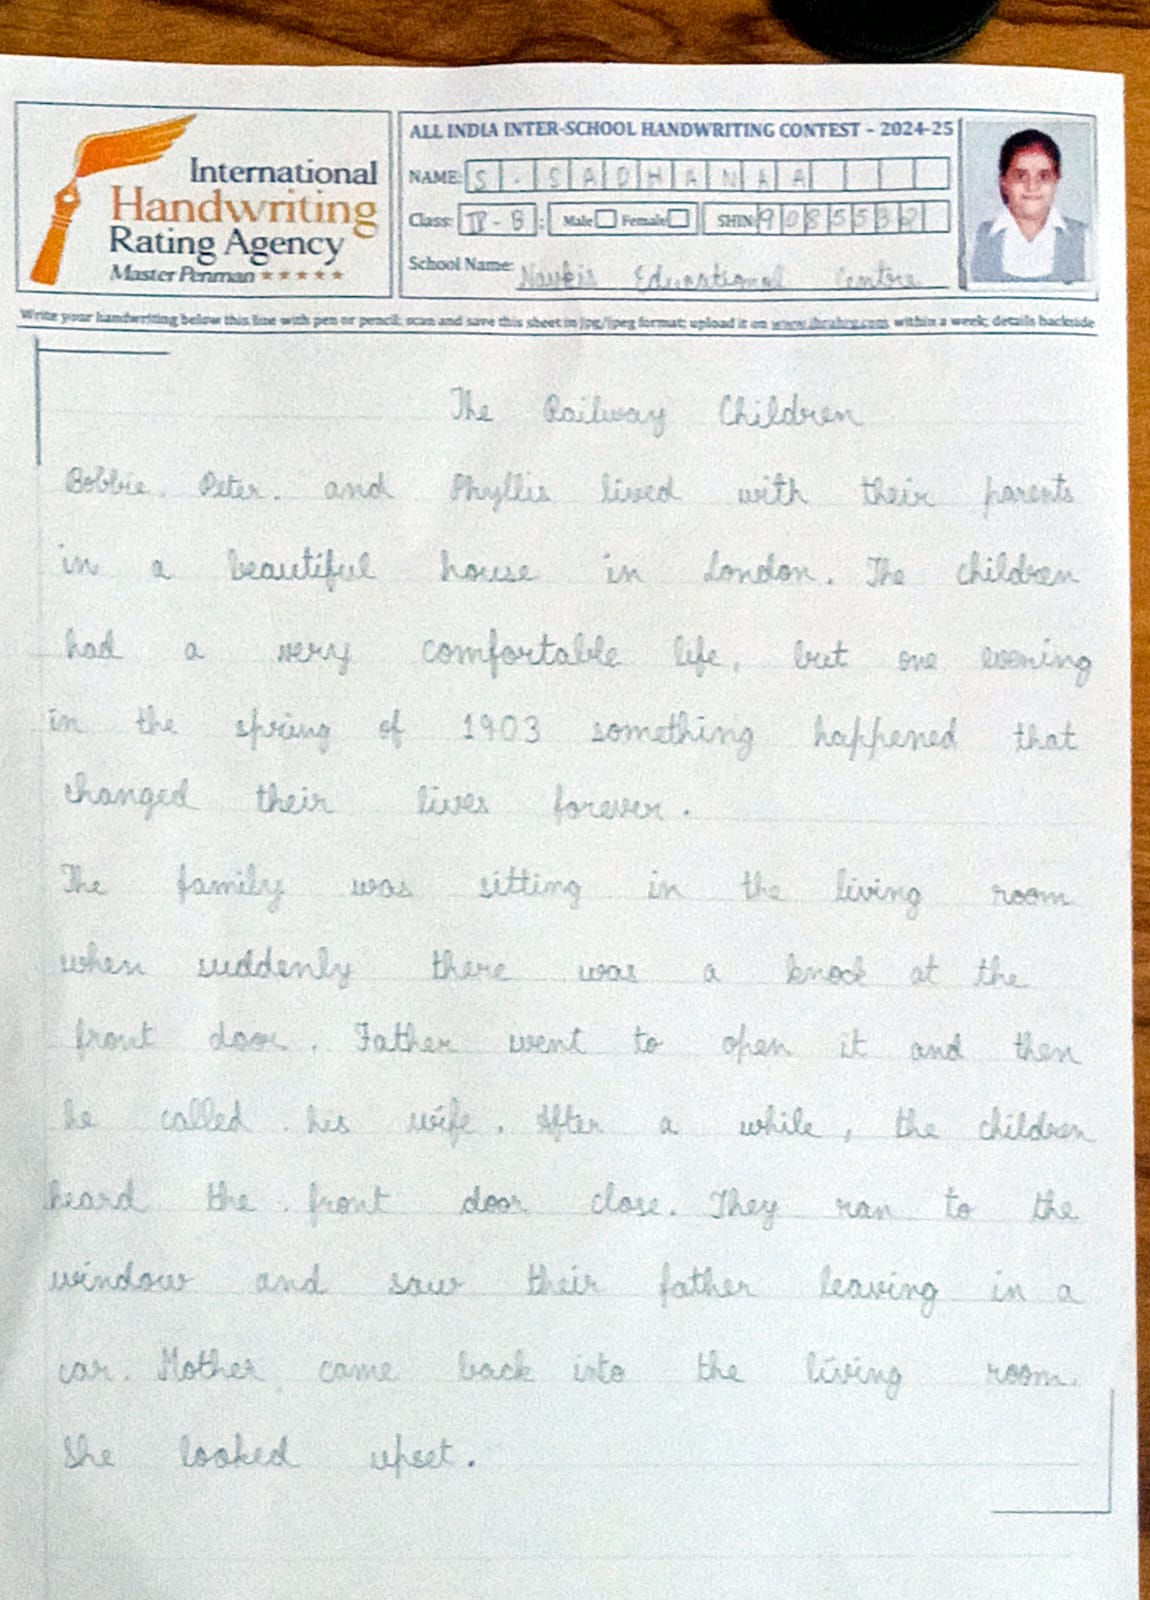 International
Handwriting
Rating Agency
Master Penman ★★★★★
ALL INDIA INTER-SCHOOL HANDWRITING CONTEST - 2024-25
NAME: S. SADHANAA
Class: IV-B Male Female SHIN: 9085532
School Name: Educational Centre
Write your handwriting below this line with pen or pencil; scan and save this sheet in jpg/jpeg format; upload it on within a week; details backside
The Railway Children
Bobbie, Peter, and Phyllis lived with their parents
in a beautiful house in London. The children
had a very comfortable life, but one evening
in the spring of 1903 something happened that
changed their lives forever.
The family was sitting in the living room
when suddenly there was a knock at the
front door. Father went to open it and then
he called his wife. After a while, the children
heard the front door close. They ran to the
window and saw their father leaving in a
car. Mother came back into the living room.
She looked upset.